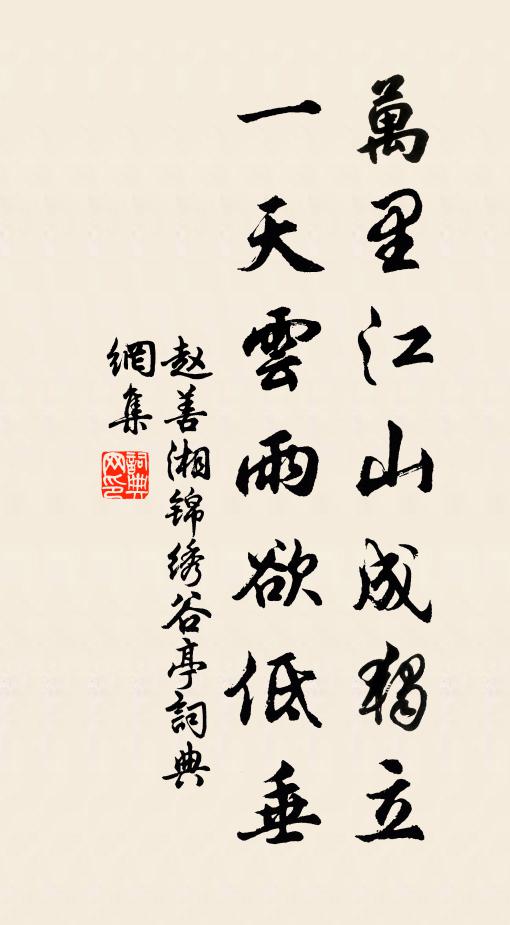 萬里江山成獨立
一天雲雨欲低垂
赵善湘锦绣谷亭詞典
網集
詞典網印